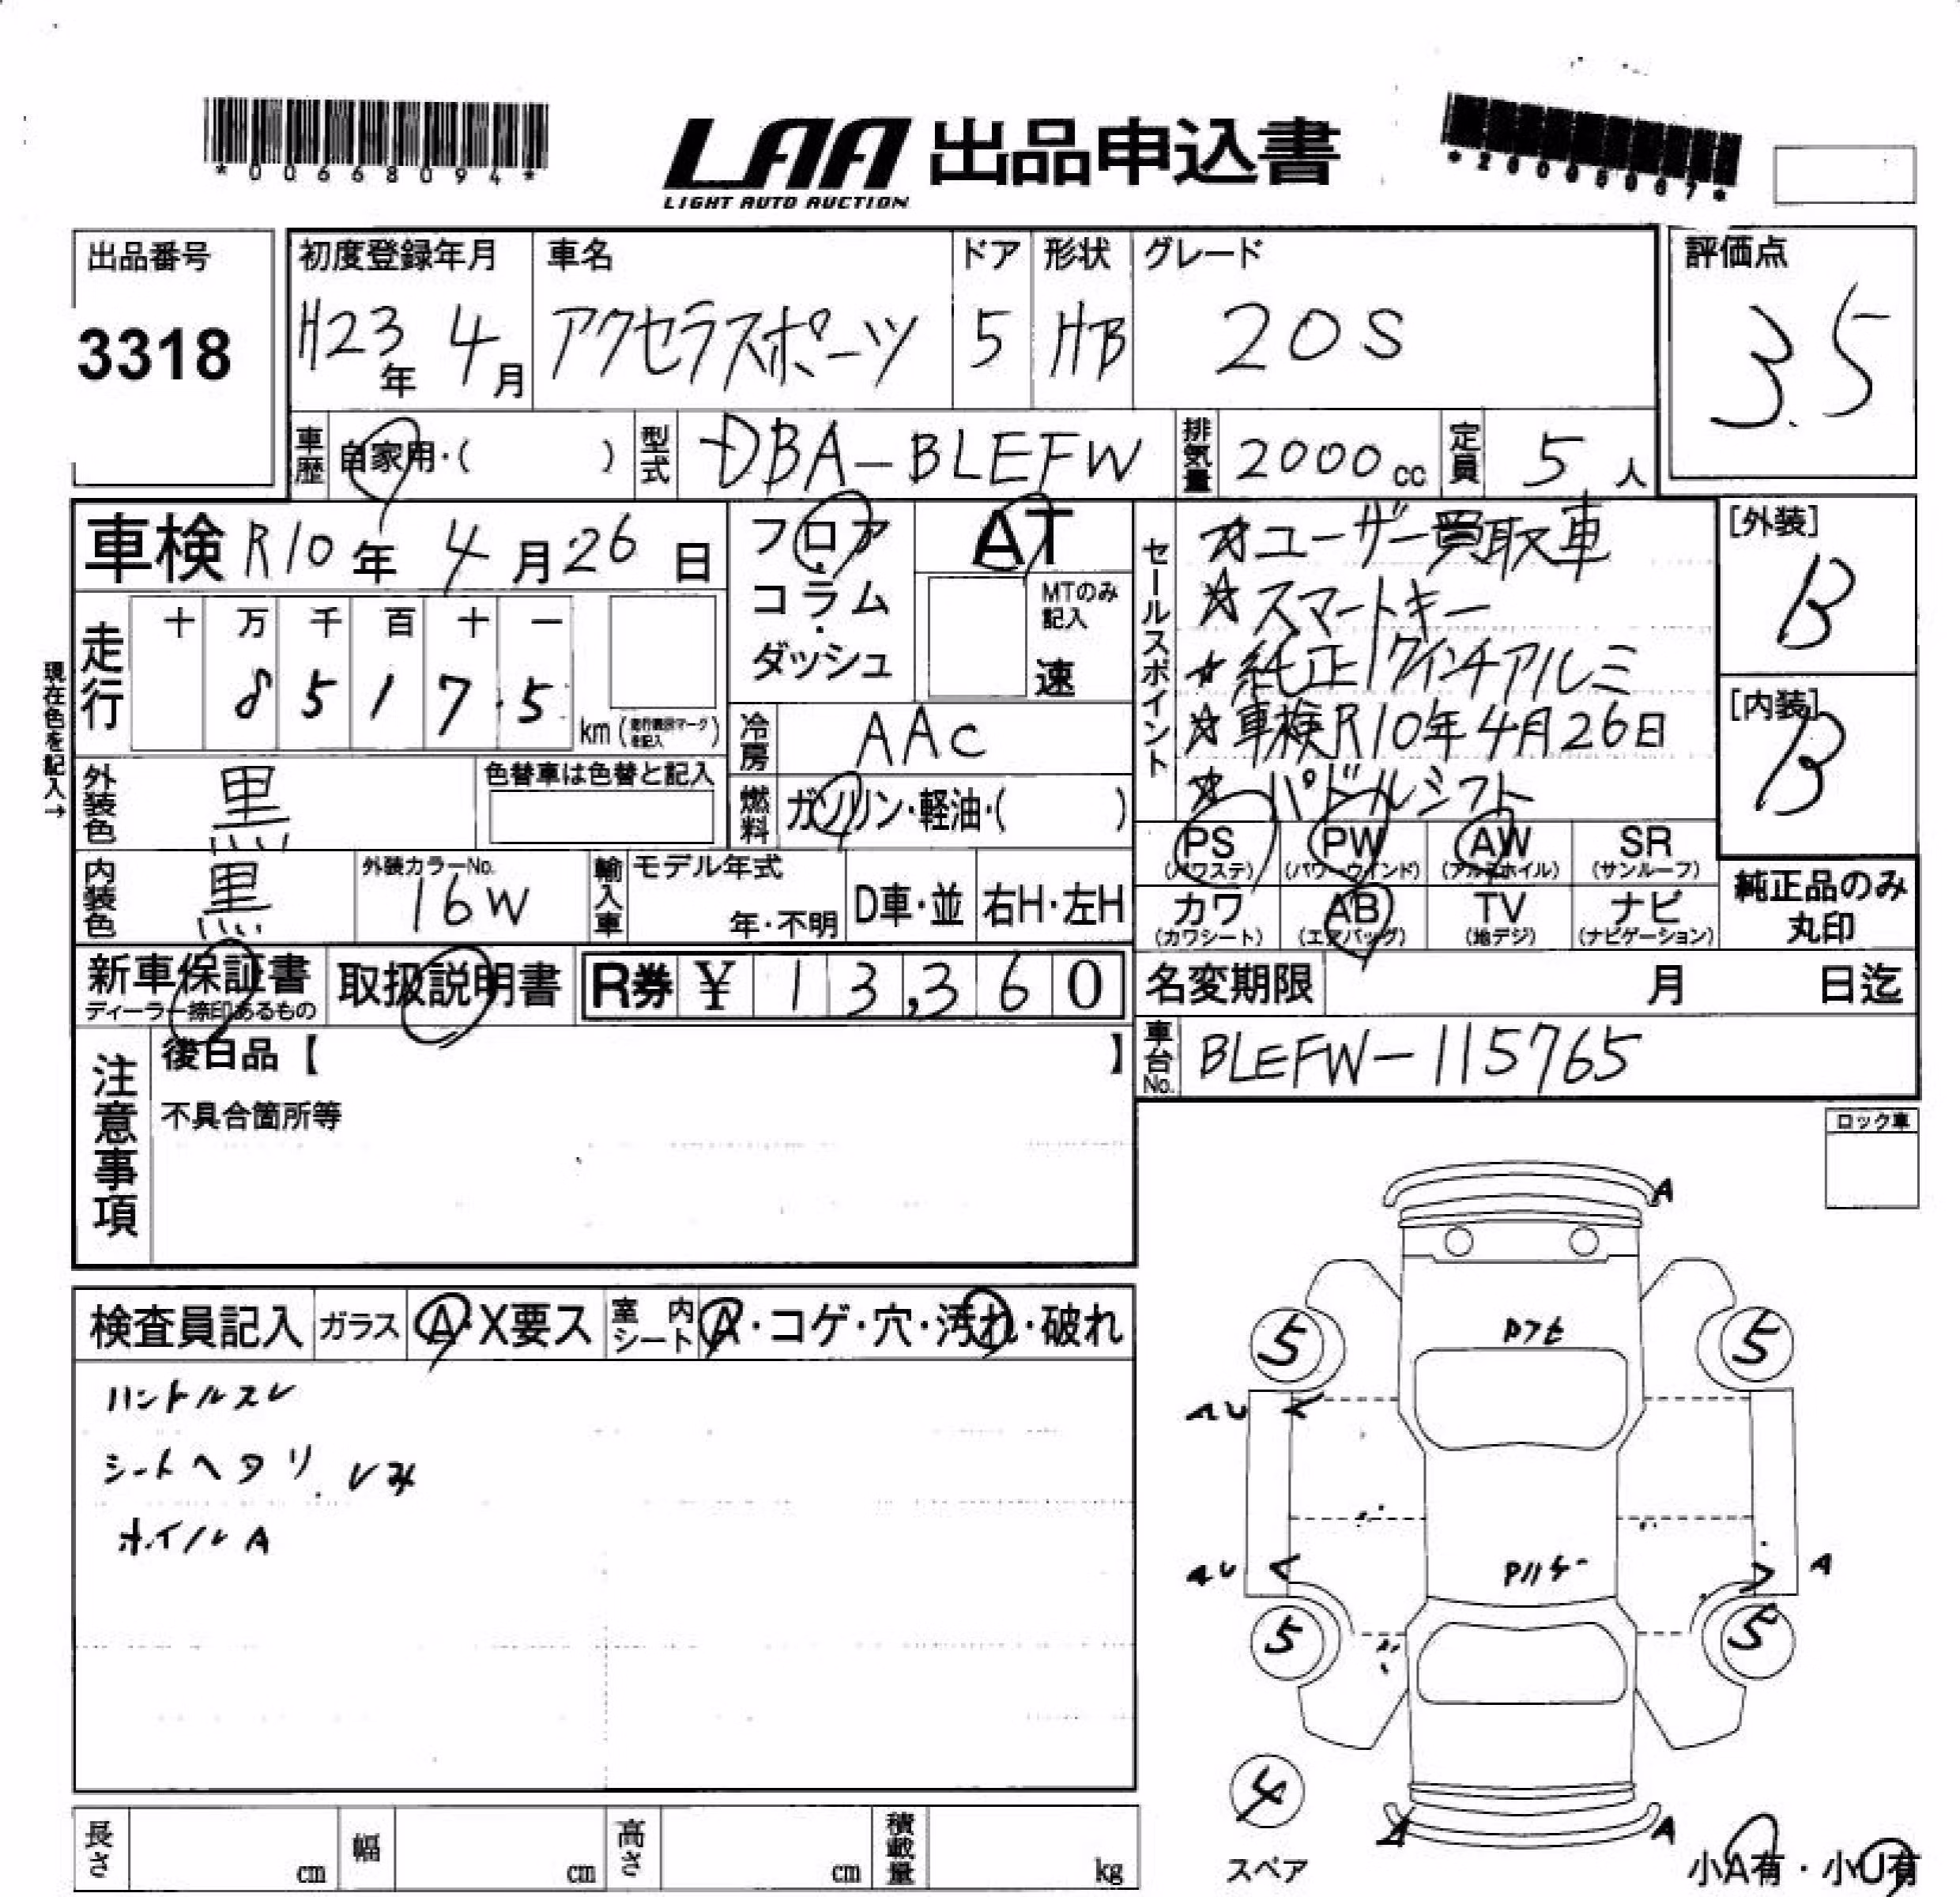 *00668094*
LAA 出品申込書
LIGHT AUTO AUCTION
出品番号
3318
初度登録年月
H23年 4月
車名
アクセラスポーツ
ドア
5
形状
HB
グレード
20S
評価点
3.5
車歴
自家用・( )
型式
DBA-BLEFW
排気量
2000cc
定員
5人
車検 R10年 4月26日
フロア
・
コラム
・
ダッシュ
AT
MTのみ
記入
速
セールスポイント
☆ユーザー買取車
☆スマートキー
☆純正17インチアルミ
☆車検R10年4月26日
☆パドルシフト
[外装]
B
[内装]
B
現在色を記入→
走行
十 万 千 百 十 一
8 5 1 7.5
km
冷房
AAC
外装色
黒
色替車は色替と記入
燃料
ガソリン・軽油・( )
PS
(パワステ)
PW
(パワーウインド)
AW
(アルミホイル)
SR
(サンルーフ)
内装色
黒
外装カラーNo.
16W
輸入車
モデル年式
年・不明
D車・並
右H・左H
カワ
(カワシート)
AB
(エアバッグ)
TV
(地デジ)
ナビ
(ナビゲーション)
純正品のみ
丸印
新車保証書
ディーラー捺印あるもの
取扱説明書
R券 ¥ 13,360
名変期限 月 日迄
注意事項
後日品【 】
不具合箇所等
車台No.
BLEFW-115765
ロック車
検査員記入
ガラス
A・X要ス
室内
シート
A・コゲ・穴・汚れ・破れ
ハンドルスレ
シートヘタリ.シみ
ホイルA
A
5
5
A
A
5
5
4
スペア
A
小A有・小U有
長さ cm
幅 cm
高さ cm
積載量 kg